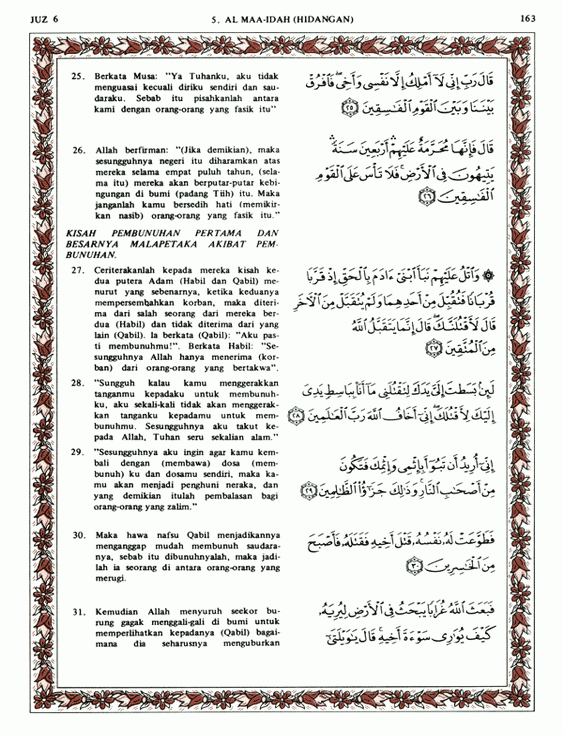 JUZ 6
5. AL MAA-IDAH (HIDANGAN)
163
25. Berkata Musa: "Ya Tuhanku, aku tidak
menguasai kecuali diriku sendiri dan sau-
daraku. Sebab itu pisahkanlah antara
kami dengan orang-orang yang fasik itu"
قَالَ رَبِّ إِنِّى لَآ أَمْلِكُ إِلَّا نَفْسِى وَأَخِى فَٱفْرُقْ
بَيْنَنَا وَبَيْنَ ٱلْقَوْمِ ٱلْفَٰسِقِينَ ٢٥
26. Allah berfirman: "(Jika demikian), maka
sesungguhnya negeri itu diharamkan atas
mereka selama empat puluh tahun, (sela-
ma itu) mereka akan berputar-putar kebi-
ngungan di bumi (padang Tiih) itu. Maka
janganlah kamu bersedih hati (memikir-
kan nasib) orang-orang yang fasik itu."
قَالَ فَإِنَّهَا مُحَرَّمَةٌ عَلَيْهِمْ أَرْبَعِينَ سَنَةً
يَتِيهُونَ فِى ٱلْأَرْضِ فَلَا تَأْسَ عَلَى ٱلْقَوْمِ
ٱلْفَٰسِقِينَ ٢٦
KISAH PEMBUNUHAN PERTAMA DAN
BESARNYA MALAPETAKA AKIBAT PEM-
BUNUHAN.
27. Ceriterakanlah kepada mereka kisah ke-
dua putera Adam (Habil dan Qabil) me-
nurut yang sebenarnya, ketika keduanya
mempersembahkan korban, maka diteri-
ma dari salah seorang dari mereka ber-
dua (Habil) dan tidak diterima dari yang
lain (Qabil). Ia berkata (Qabil): "Aku pas-
ti membunuhmu!". Berkata Habil: "Se-
sungguhnya Allah hanya menerima (kor-
ban) dari orang-orang yang bertakwa".
۞ وَٱتْلُ عَلَيْهِمْ نَبَأَ ٱبْنَىْ ءَادَمَ بِٱلْحَقِّ إِذْ قَرَّبَا
قُرْبَانًا فَتُقُبِّلَ مِنْ أَحَدِهِمَا وَلَمْ يُتَقَبَّلْ مِنَ ٱلْءَاخَرِ
قَالَ لَأَقْتُلَنَّكَ قَالَ إِنَّمَا يَتَقَبَّلُ ٱللَّهُ
مِنَ ٱلْمُتَّقِينَ ٢٧
28. "Sungguh kalau kamu menggerakkan
tanganmu kepadaku untuk membunuh-
ku, aku sekali-kali tidak akan menggerak-
kan tanganku kepadamu untuk mem-
bunuhmu. Sesungguhnya aku takut ke-
pada Allah, Tuhan seru sekalian alam."
لَئِنۢ بَسَطتَ إِلَىَّ يَدَكَ لِتَقْتُلَنِى مَآ أَنَا۠ بِبَاسِطٍ يَدِىَ
إِلَيْكَ لِأَقْتُلَكَ إِنِّىٓ أَخَافُ ٱللَّهَ رَبَّ ٱلْعَٰلَمِينَ ٢٨
29. "Sesungguhnya aku ingin agar kamu kem-
bali dengan (membawa) dosa (mem-
bunuh) ku dan dosamu sendiri, maka ka-
mu akan menjadi penghuni neraka, dan
yang demikian itulah pembalasan bagi
orang-orang yang zalim."
إِنِّىٓ أُرِيدُ أَن تَبُوٓأَ بِإِثْمِى وَإِثْمِكَ فَتَكُونَ
مِنْ أَصْحَٰبِ ٱلنَّارِ وَذَٰلِكَ جَزَٰٓؤُا۟ ٱلظَّٰلِمِينَ ٢٩
30. Maka hawa nafsu Qabil menjadikannya
menganggap mudah membunuh saudara-
nya, sebab itu dibunuhnyalah, maka jadi-
lah ia seorang di antara orang-orang yang
merugi.
فَطَوَّعَتْ لَهُۥ نَفْسُهُۥ قَتْلَ أَخِيهِ فَقَتَلَهُۥ فَأَصْبَحَ
مِنَ ٱلْخَٰسِرِينَ ٣٠
31. Kemudian Allah menyuruh seekor bu-
rung gagak menggali-gali di bumi untuk
memperlihatkan kepadanya (Qabil) bagai-
mana dia seharusnya menguburkan
فَبَعَثَ ٱللَّهُ غُرَابًا يَبْحَثُ فِى ٱلْأَرْضِ لِيُرِيَهُۥ
كَيْفَ يُوَٰرِى سَوْءَةَ أَخِيهِ قَالَ يَٰوَيْلَتَىٰٓ